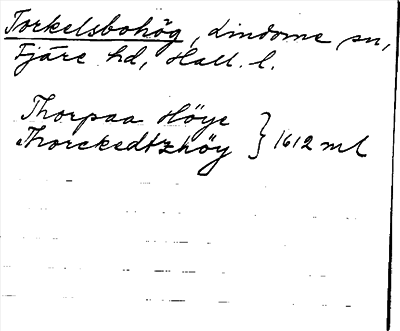 Torkelsbohög, Lindome sn,
Fjäre hd, Hall. l.
Thorpaa Höye
Thorckedtzhöy } 1612 ml